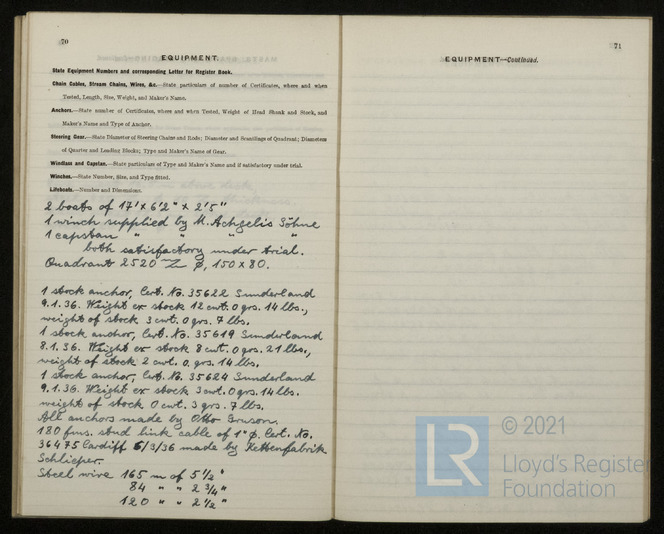 70
EQUIPMENT.
State Equipment Numbers and corresponding Letter for Register Book.
Chain Cables, Stream Chains, Wires, &c.—State particulars of number of Certificates, where and when
Tested, Length, Size, Weight, and Maker's Name.
Anchors.—State number of Certificates, where and when Tested, Weight of Head Shank and Stock, and
Maker's Name and Type of Anchor.
Steering Gear.—State Diameter of Steering Chains and Rods; Diameter and Scantlings of Quadrant; Diameters
of Quarter and Leading Blocks; Type and Maker's Name of Gear.
Windlass and Capstan.—State particulars of Type and Maker's Name and if satisfactory under trial.
Winches.—State Number, Size, and Type fitted.
Lifeboats.—Number and Dimensions.
2 boats of 17' x 6'2" x 2'5"
1 winch supplied by H. Achgelis Söhne
1 capstan " " " "
both satisfactory under trial.
Quadrant 2520 ϕ, 150 x 80.
1 stock anchor, Cert. No. 35622 Sunderland
9.1.36. Weight ex stock 12 cwt. 0 qrs. 14 lbs.,
weight of stock 3 cwt. 0 qrs. 7 lbs.
1 stock anchor, Cert. No. 35619 Sunderland
8.1.36. Weight ex stock 8 cwt. 0 qrs. 21 lbs.,
weight of stock 2 cwt. 0. qrs. 14 lbs.
1 stock anchor, Cert. No. 35624 Sunderland
9.1.36. Weight ex stock 3 cwt. 0 qrs. 14 lbs.
weight of stock 0 cwt. 3 qrs. 7 lbs.
All anchors made by Otto Gruson.
180 fms. stud link cable of 1" ϕ. Cert. No.
36475 Cardiff 6/3/36 made by Kettenfabrik
Schlieper.
Steel wire 165 m of 5 1/2"
84 " " 2 3/4"
120 " " 2 1/2"
71
EQUIPMENT—Continued.
LR
© 2021
Lloyd's Register
Foundation